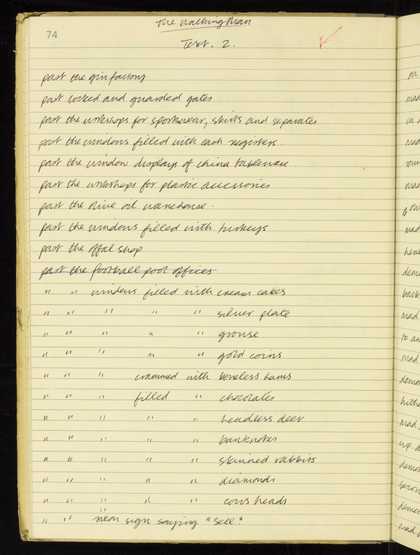 74
The Walking Man
Text. 2.
past the gin factory
past locked and guarded gates
past the workshops for sportswear, skirts and separates
past the windows filled with cash registers
past the window displays of china tableware
past the workshops for plastic accessories
past the olive oil warehouse
past the windows filled with turkeys
past the offal shop
past the football pool offices
" " windows filled with cream cakes
" " " " " silver plate
" " " " " grouse
" " " " " gold coins
" " " crammed with boneless hams
" " " filled " chocolates
" " " " " headless deer
" " " " " banknotes
" " " " " skinned rabbits
" " " " " diamonds
" " " " " cows heads
" " neon sign saying "sell"